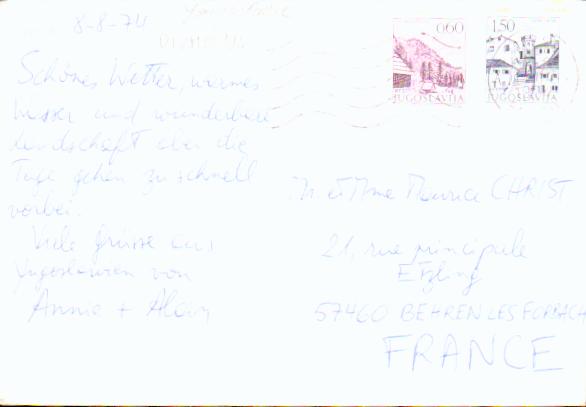 8-8-74
Yougoslavie
0.60
JUGOSLAVIJA
1.50
JUGOSLAVIJA
Schönes Wetter, warmes
Wasser und wunderbare
Landschaft aber die
Tage gehen zu schnell
vorbei.
Viele Grüsse aus
Jugoslawien von
Annie + Alain
M. et Mme Maurice CHRIST
21, rue principale
Etzling
57460 BEHREN LES FORBACH
FRANCE